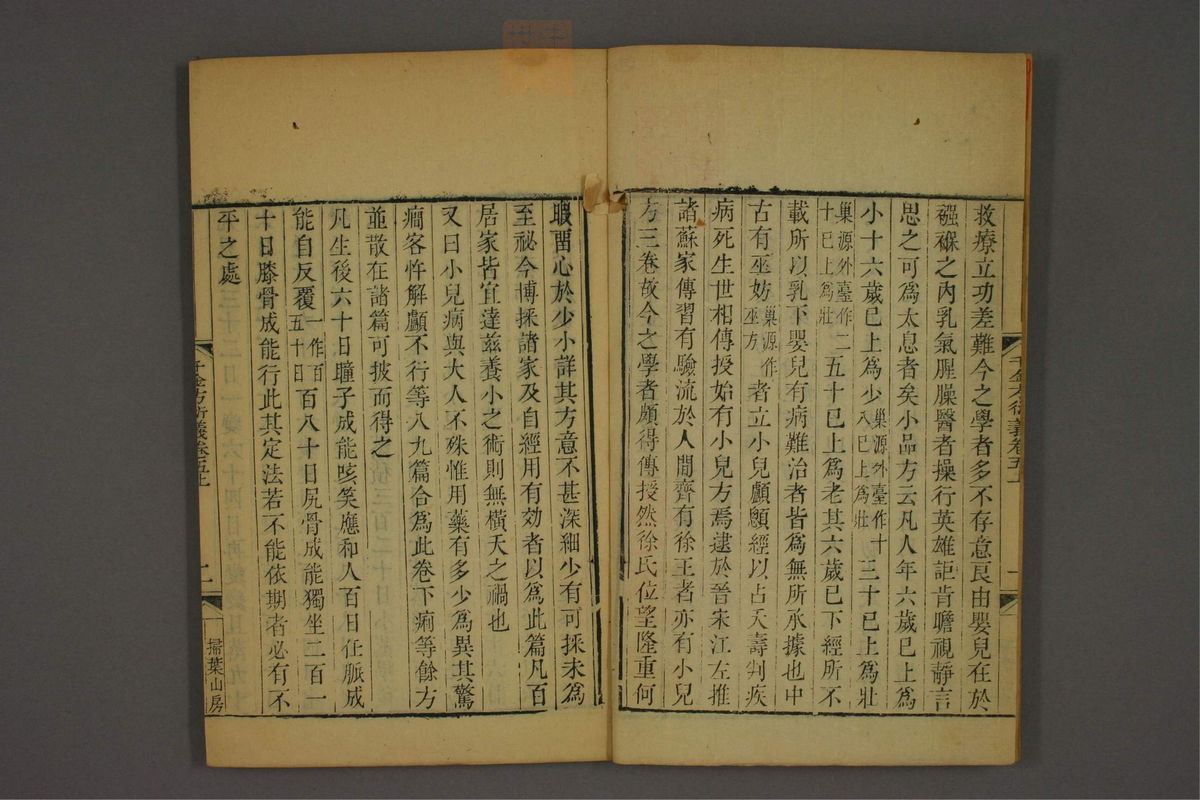 救療立功差難今之學者多不存意良由嬰兒在於
襁褓之內乳氣腥臊醫者操行英雄詎肯瞻視靜言
思之可爲太息者矣小品方云凡人年六歲已上爲
小十六歲已上爲少巢源外臺作十八已上爲壯三十已上爲壯
巢源外臺作二十已上爲壯五十已上爲老其六歲已下經所不
載所以乳下嬰兒有病難治者皆爲無所承據也中
古有巫妨巢源作巫方者立小兒顱顖經以占夭壽判疾
病死生世相傳授始有小兒方焉逮於晉宋江左推
諸蘇家傳習有驗流於人間齊有徐王者亦有小兒
方三卷故今之學者頗得傳授然徐氏位望隆重何
千金方衍義卷五上
一
暇畱心於少小詳其方意不甚深細少有可採未爲
至祕今博採諸家及自經用有効者以爲此篇凡百
居家皆宜達茲養小之術則無橫夭之禍也
又曰小兒病與大人不殊惟用藥有多少爲異其驚
癎客忤解顱不行等八九篇合爲此卷下痢等餘方
並散在諸篇可披而得之
凡生後六十日瞳子成能咳笑應和人百日任脈成
能自反覆一作百五十日百八十日尻骨成能獨坐二百一
十日膝骨成能行此其定法若不能依期者必有不
平之處
千金方衍義卷五上
二
掃葉山房